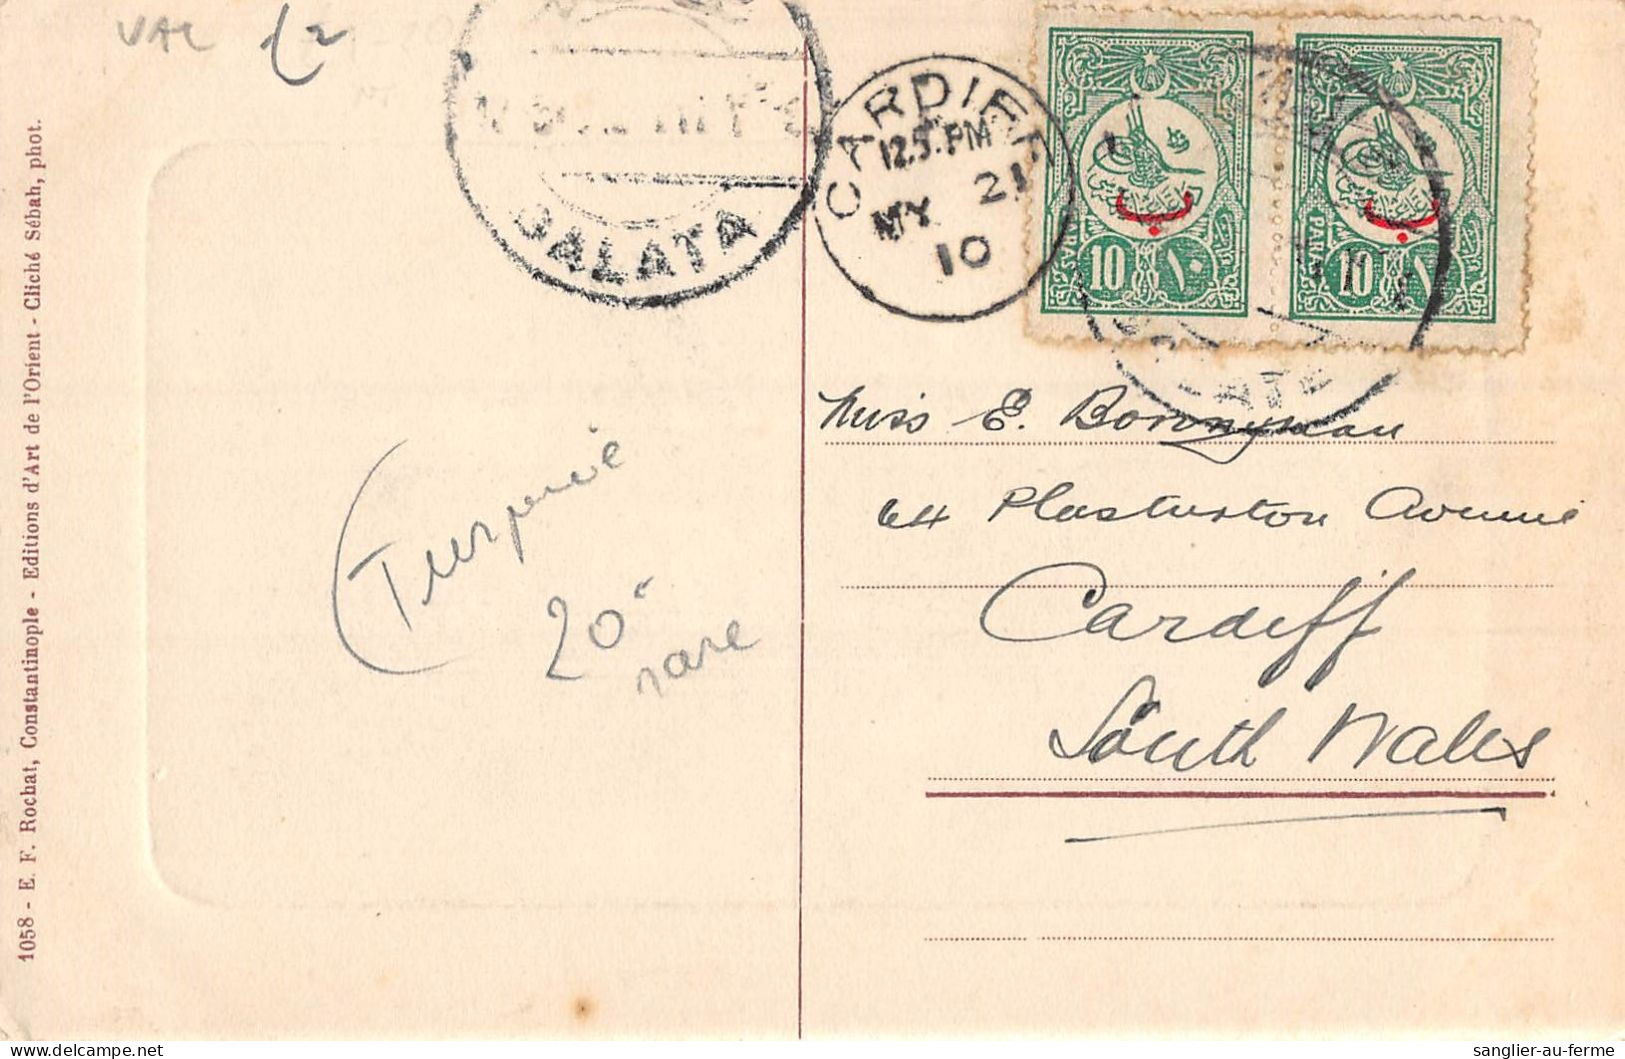 VAL
1058 - E. F. Rochat, Constantinople - Editions d'Art de l'Orient - Cliché Sébah, phot.
GALATA
CARDIFF
12.5.PM
MY 21
10
ب
ب
PARAS 10 ١٠
PARAS 10 ١٠
Miss E.
64 Plasturton Avenue
Cardiff
South Wales
20
rare
sanglier-au-ferme